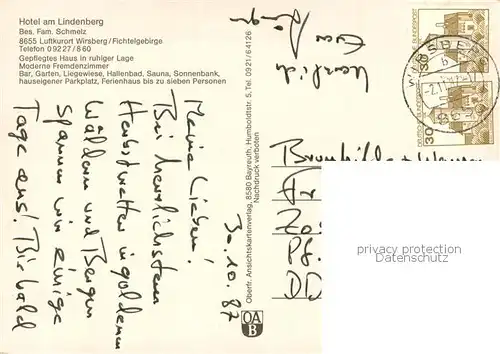 Hotel am Lindenberg
Bes. Fam. Schmelz
8655 Luftkurort Wirsberg/Fichtelgebirge
Telefon 09227/860
Gepflegtes Haus in ruhiger Lage
Moderne Fremdenzimmer
Bar, Garten, Liegewiese, Hallenbad, Sauna, Sonnenbank,
hauseigener Parkplatz, Ferienhaus bis zu sieben Personen
30.10.87
Meine Lieben!
Bei herrlichstem
Herbstwetter in goldenen
Wäldern und Bergen
spannen wir einige
Tage aus! Bis bald
Herzlich
Eure
Oberfr. Ansichtskartenverlag, 8580 Bayreuth, Humboldtstr. 5, Tel. 09 21/6 41 26
Nachdruck verboten
OA
B
WIRSBERG
b
DEUTSCHE BUNDESPOST
30
DEUTSCHE BUNDESPOST
30
Fr
DD
privacy protection
Datenschutz